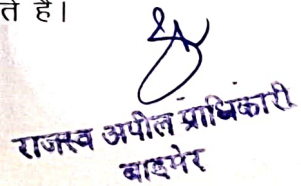 ते हैं।
राजस्व अपील प्राधिकारी
बाड़मेर